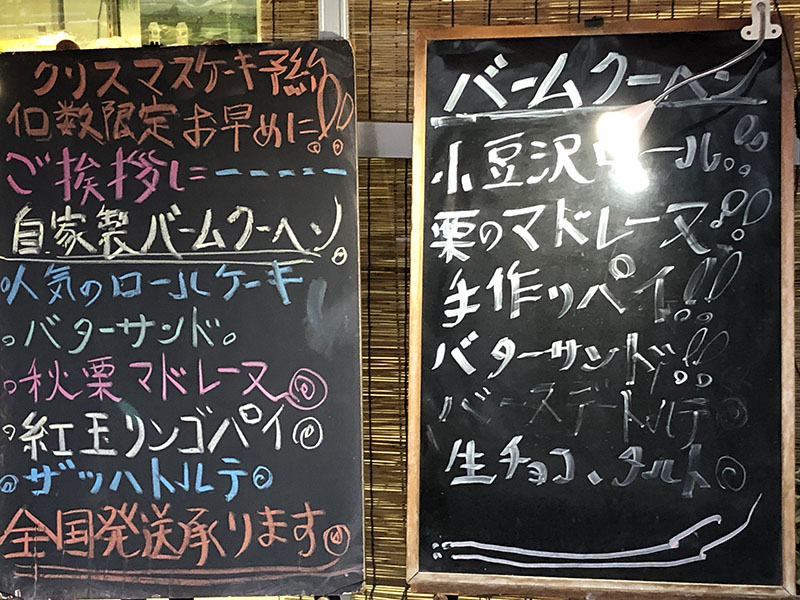 クリスマスケーキ予約
個数限定お早めに!!
ご挨拶に-----
自家製バームクーヘン。
人気のロールケーキ
バターサンド。
秋栗マドレーヌ
紅玉リンゴパイ
ザッハトルテ
全国発送承ります
バームクーヘン
小豆沢ロール!!
栗のマドレーヌ!!
手作りパイ!!
バターサンド!!
バースデートルテ
生チョコ、タルト